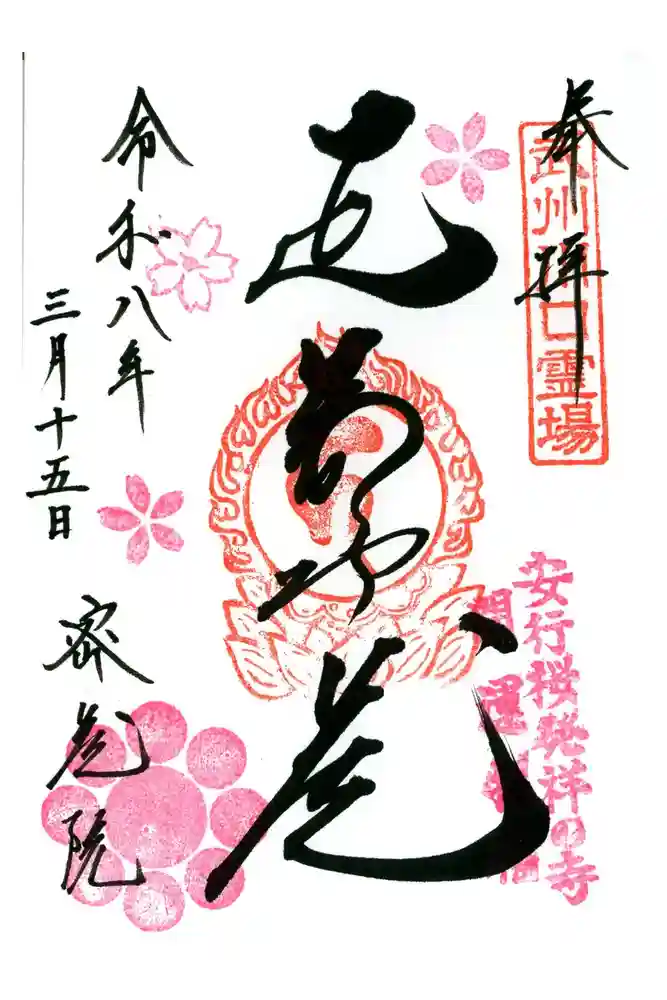 奉拝
武州口霊場
安行桜発祥の寺
開運
延命地蔵
令和八年
三月十五日
密蔵院